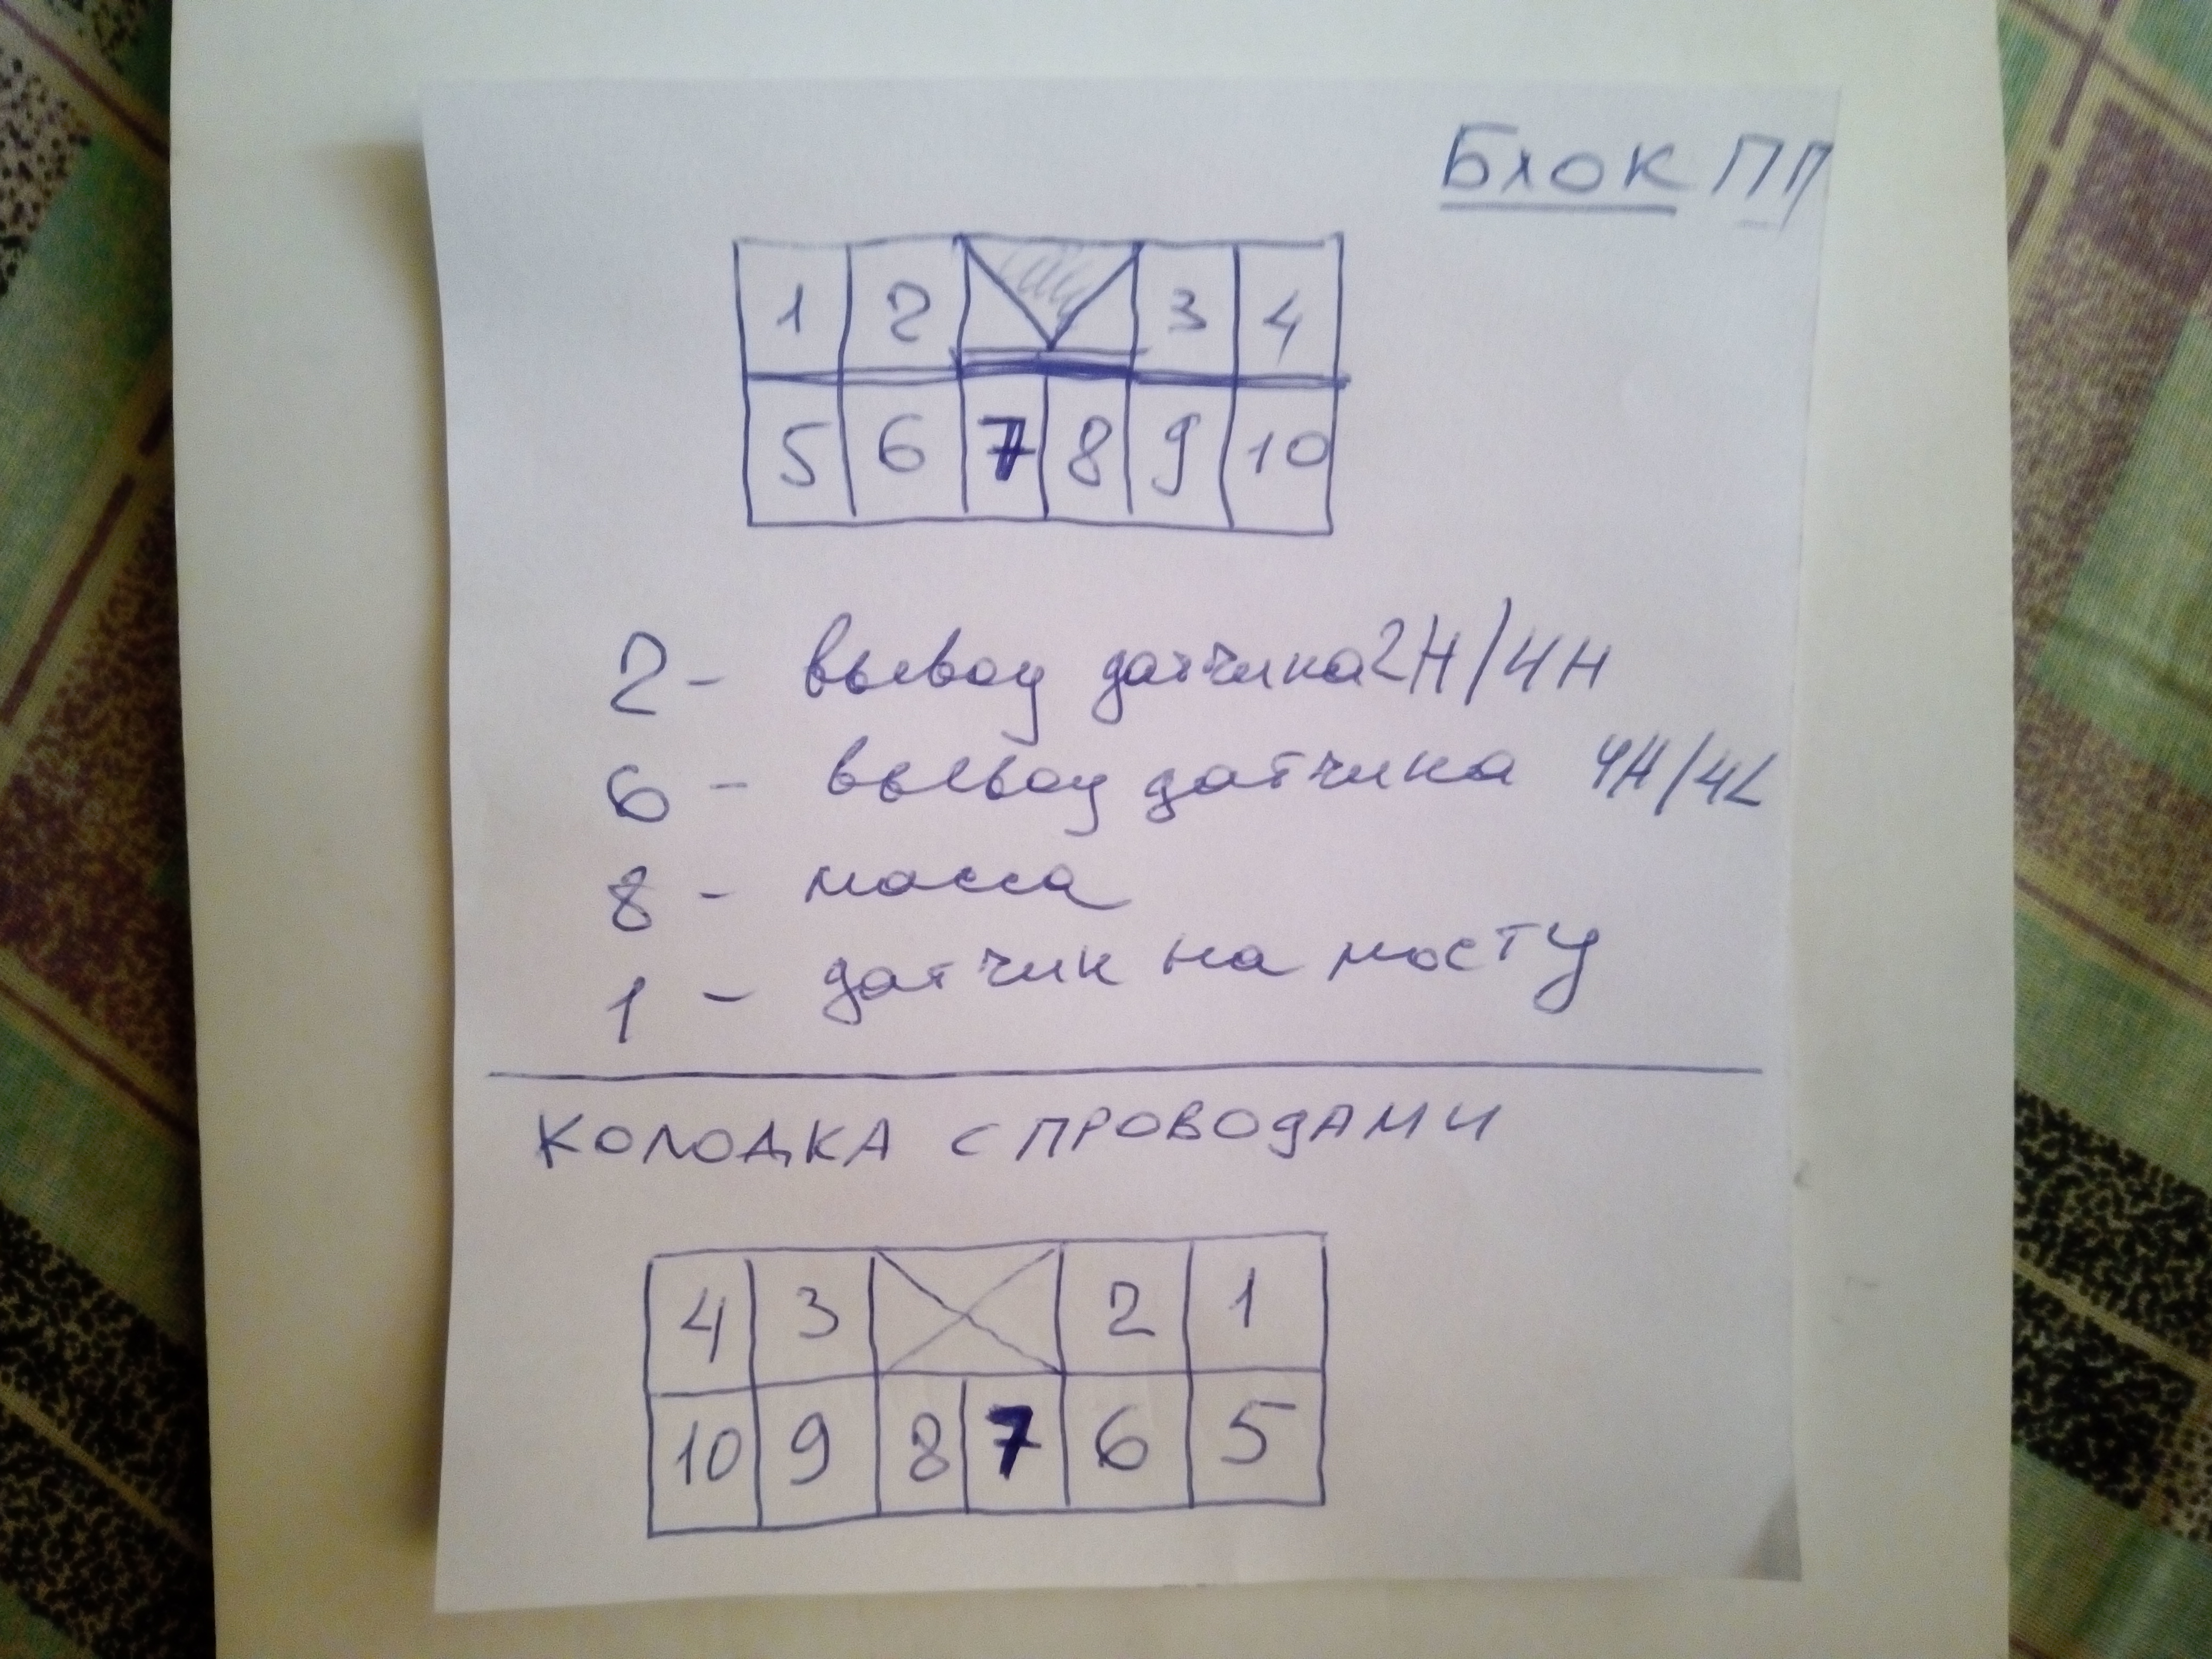 Блок ПП
1 2 3 4
5 6 7 8 9 10
2 - вывод датчика 2H/4H
6 - вывод датчика 4H/4L
8 - масса
1 - датчик на мосту
КОЛОДКА С ПРОВОДАМИ
4 3 2 1
10 9 8 7 6 5